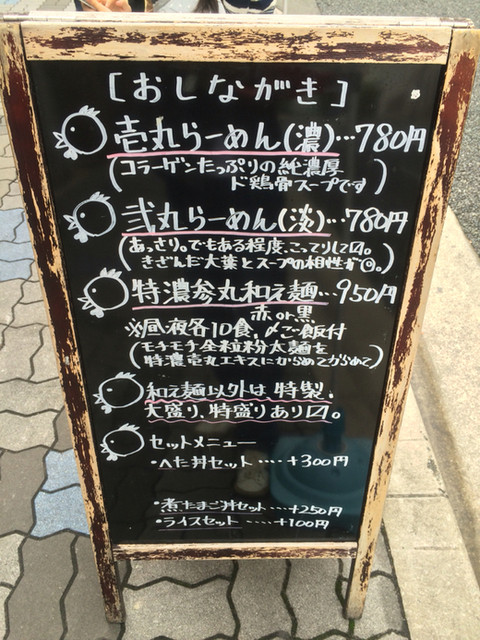 [おしながき]
壱丸らーめん(濃)…780円
(コラーゲンたっぷりの純濃厚
ド鶏骨スープです)
弐丸らーめん(淡)…780円
(あっさり。でもある程度こってりして〼。
きざんだ大葉とスープの相性が◎。)
特濃参丸和え麺…950円
赤or黒
※昼夜各10食。〆ご飯付
(モチモチ全粒粉太麺を
特濃壱丸エキスにからめてからめて)
和え麺以外は、特製、
大盛り、特盛りあり〼。
セットメニュー
・へた丼セット……+300円
・煮たまご丼セット……+250円
・ライスセット……+100円